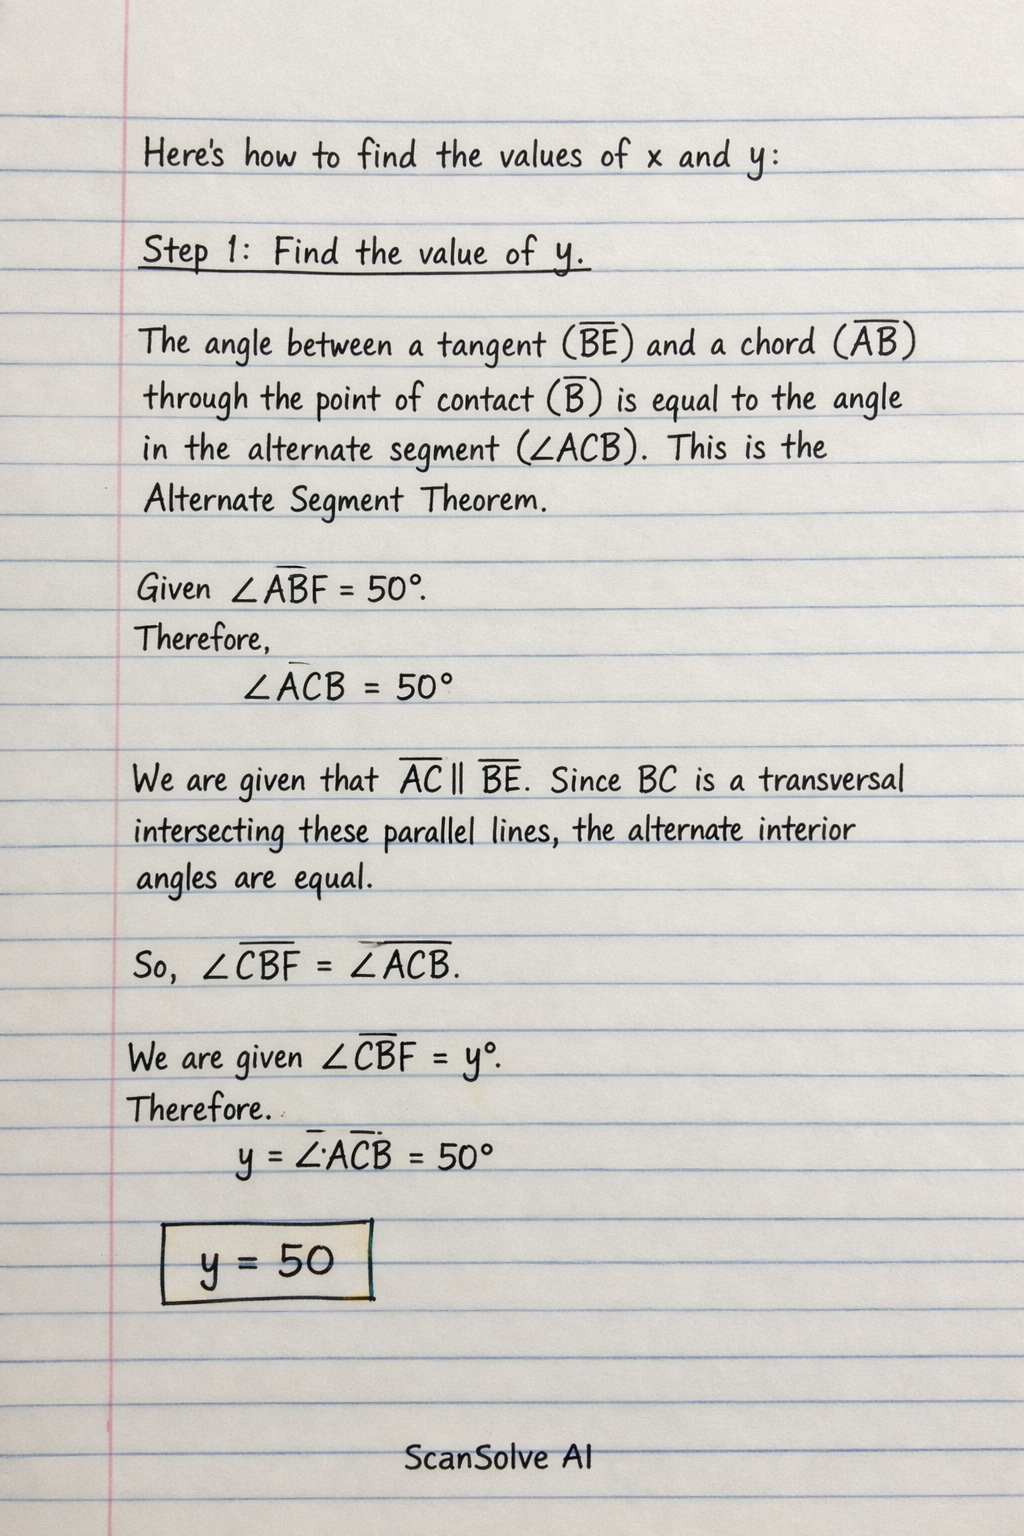 Here's how to find the values of x and y:
Step 1: Find the value of y.
The angle between a tangent (B̅E̅) and a chord (A̅B̅)
through the point of contact (B̅) is equal to the angle
in the alternate segment (∠ACB). This is the
Alternate Segment Theorem.
Given ∠A̅B̅F = 50°.
Therefore,
∠A̅CB = 50°
We are given that A̅C̅ || B̅E̅. Since BC is a transversal
intersecting these parallel lines, the alternate interior
angles are equal.
So, ∠C̅B̅F = ∠A̅C̅B̅.
We are given ∠C̅B̅F = y°.
Therefore.
y = ∠̅·AC̅B̅ = 50°
y = 50
ScanSolve AI